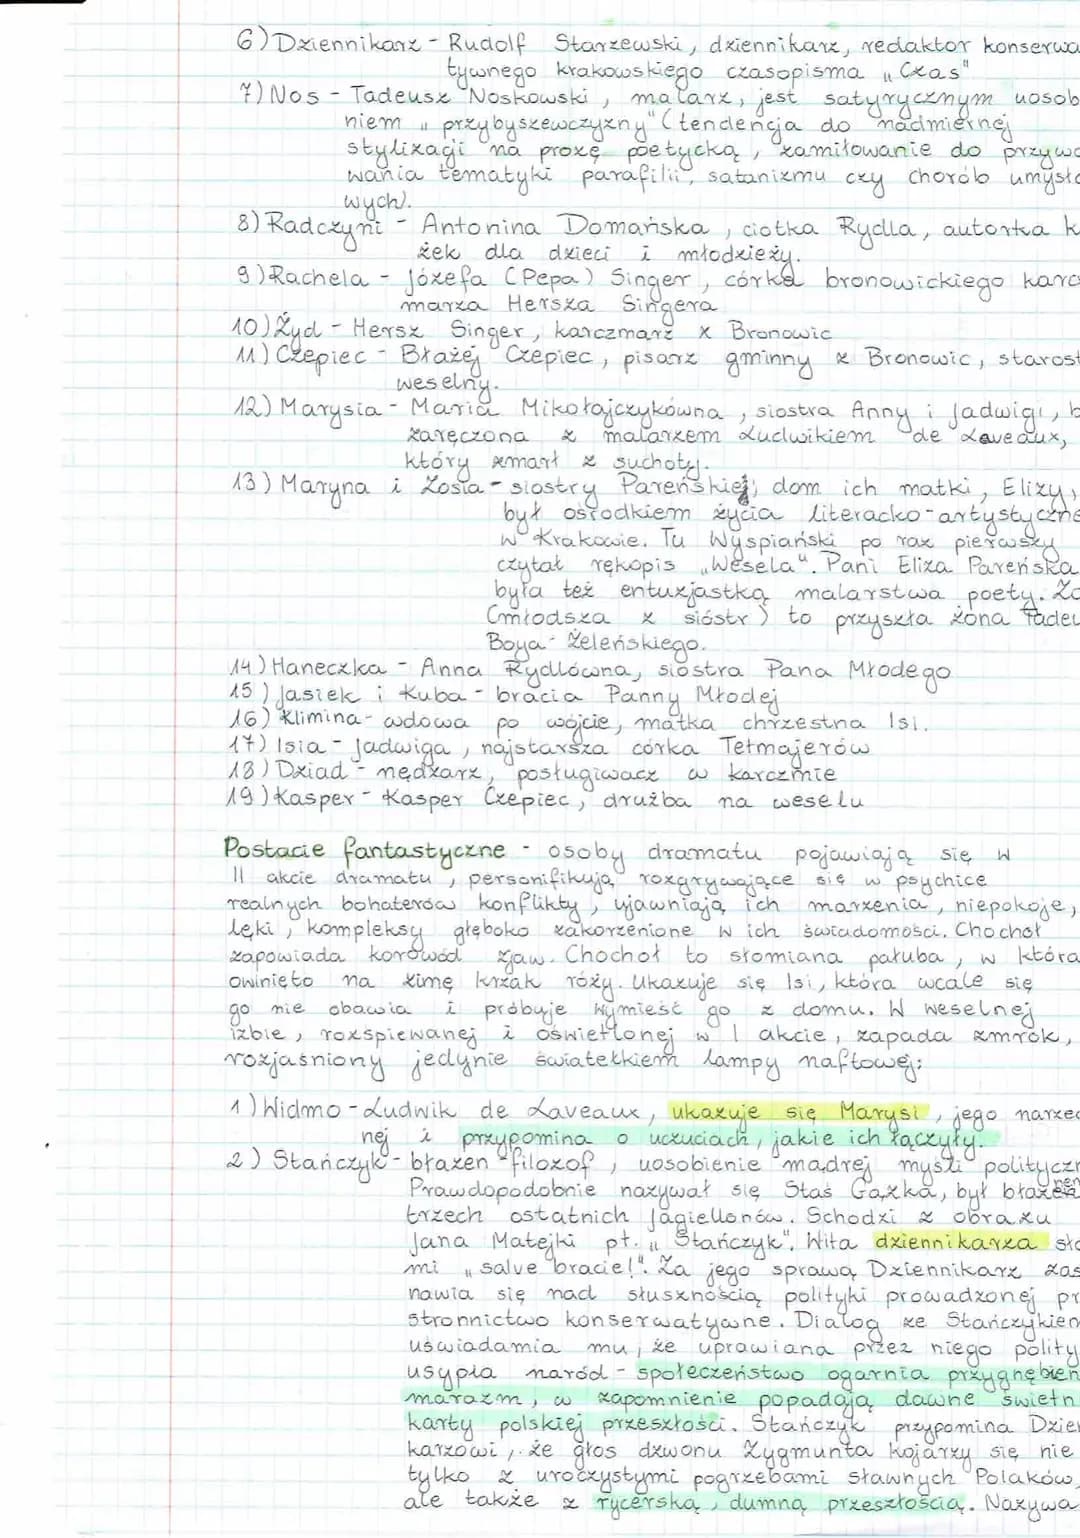 6) Dziennikarz - Rudolf Starzewski, dziennikarz, redaktor konserwa
tywnego krakowskiego czasopisma „Czas"
7) Nos - Tadeusz Noskowski, malarz, jest satyrycznym uosob
niem „przybyszewczyzny" (tendencja do nadmiernej
stylizacji na prozę poetycką, zamiłowanie do przywo
wania tematyki parafilii, satanizmu czy chorób umysło
wych).
8) Radczyni - Antonina Domańska, ciotka Rydla, autorka k
żek dla dzieci i młodzieży.
9) Rachela - Józefa (Pepa) Singer, córka bronowickiego karc
marza Hersza Singera
10) Żyd - Hersz Singer, karczmarz z Bronowic
11) Czepiec - Błażej Czepiec, pisarz gminny z Bronowic, starost
weselny.
12) Marysia - Maria Mikołajczykówna, siostra Anny i Jadwigi, b
zaręczona z malarzem Ludwikiem de Laveaux,
który zmarł z suchoty.
13) Maryna i Zosia - siostry Pareńskiej, dom ich matki, Elizy,
był ośrodkiem życia literacko-artystyczne
w Krakowie. Tu Wyspiański po raz pierwszy
czytał rękopis „Wesela". Pani Eliza Pareńska
była też entuzjastką malarstwa poety. Zo
(młodsza z sióstr) to przyszła żona Tadeu
Boya-Żeleńskiego.
14) Haneczka - Anna Rydlówna, siostra Pana Młodego
15) Jasiek i Kuba - bracia Panny Młodej
16) Klimina - wdowa po wójcie, matka chrzestna Isi.
17) Isia - Jadwiga, najstarsza córka Tetmajerów
18) Dziad - nędzarz, posługiwacz w karczmie
19) Kasper - Kasper Czepiec, drużba na weselu
Postacie fantastyczne - osoby dramatu pojawiają się w
II akcie dramatu, personifikują rozgrywające się w psychice
realnych bohaterów konflikty, ujawniają ich marzenia, niepokoje,
lęki, kompleksy głęboko zakorzenione w ich świadomości. Chochoł
zapowiada korowód zjaw. Chochoł to słomiana pałuba, w która
owinięto na zimę krzak róży. Ukazuje się Isi, która wcale się
go nie obawia i próbuje wymieść go z domu. W weselnej
izbie, rozśpiewanej i oświetlonej w I akcie, zapada zmrok,
rozjaśniony jedynie światełkiem lampy naftowej:
1) Widmo - Ludwik de Laveaux, ukazuje się Marysi, jego narzec
nej i przypomina o uczuciach, jakie ich łączyły.
2) Stańczyk - błazen - filozof, uosobienie mądrej myśli polityczn
Prawdopodobnie nazywał się Staś Gąska, był błaznem
trzech ostatnich Jagiellonów. Schodzi z obrazu
Jana Matejki pt. „Stańczyk". Wita dziennikarza sło
mi „salve bracie!". Za jego sprawą Dziennikarz zas
nawia się nad słusznością polityki prowadzonej pr
stronnictwo konserwatywne. Dialog ze Stańczykiem
uświadamia mu, że uprawiana przez niego polity
usypia naród - społeczeństwo ogarnia przygnębien
marazm, w zapomnienie popadają dawne świetn
karty polskiej przeszłości. Stańczyk przypomina Dzien
karzowi, że głos dzwonu Zygmunta kojarzy się nie
tylko z uroczystymi pogrzebami sławnych Polaków,
ale także z rycerską, dumną przeszłością. Nazywa